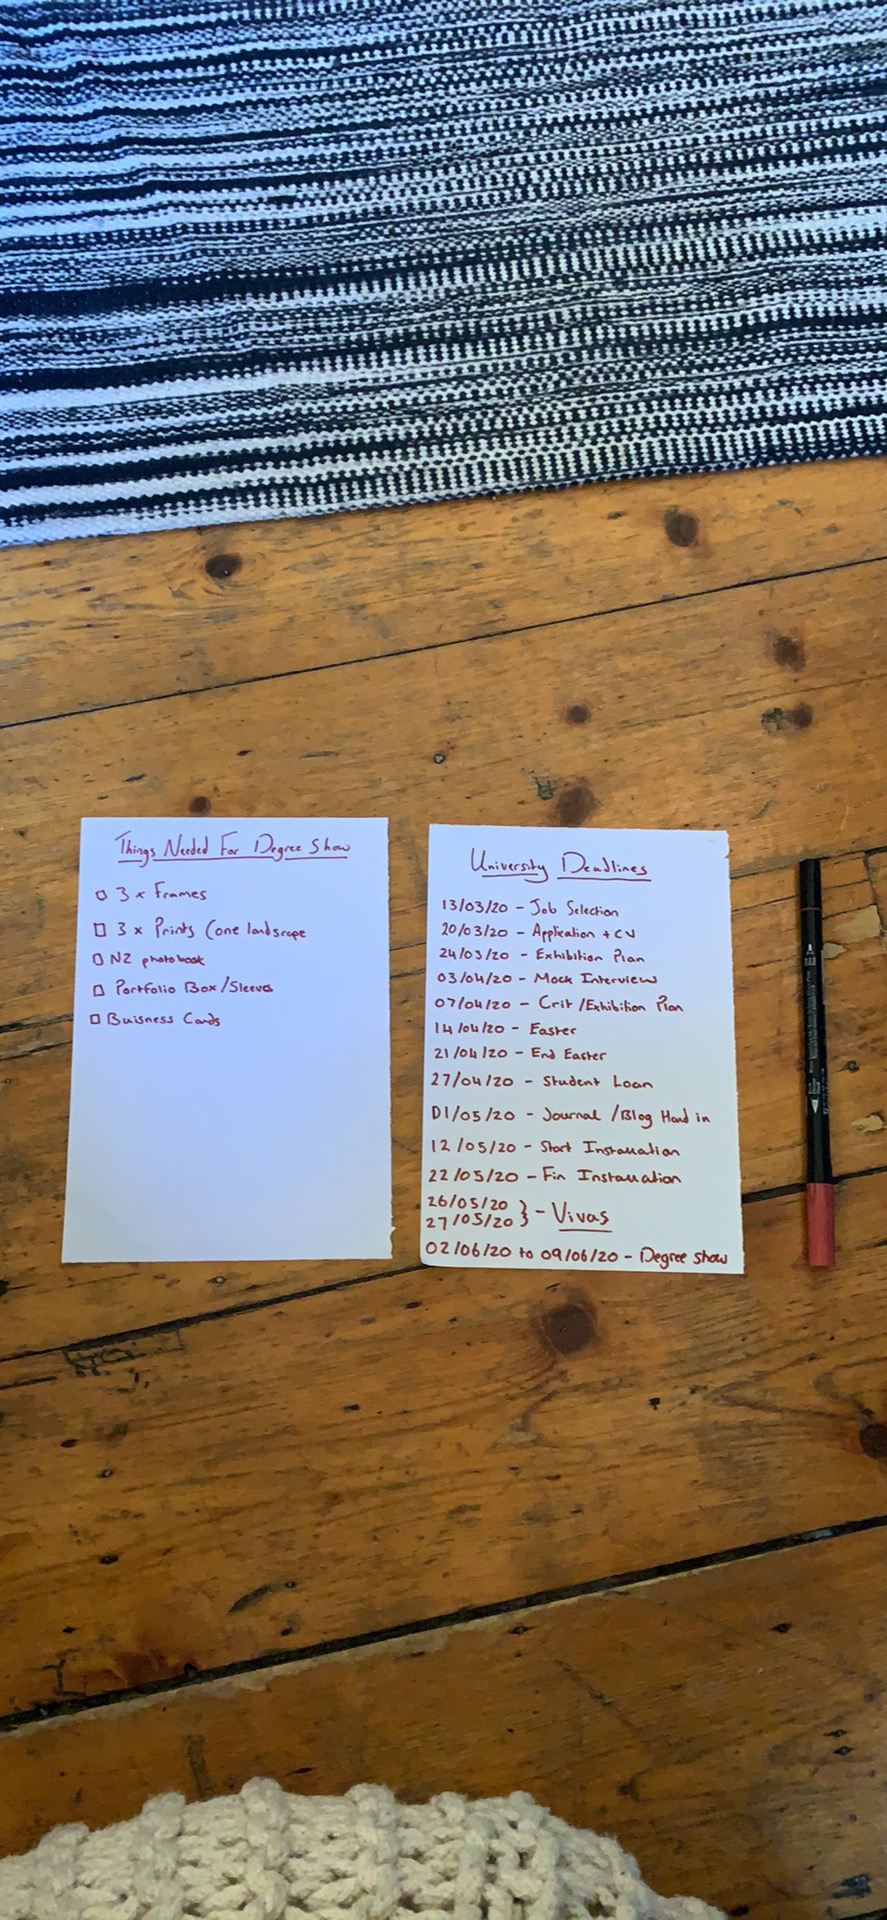 Things Needed For Degree Show
3 x Frames
3 x Prints (one landscape
NZ photobook
Portfolio Box/Sleeves
Buisness Cards
University Deadlines
13/03/20 - Job Selection
20/03/20 - Application + CV
24/03/20 - Exhibition Plan
03/04/20 - Mock Interview
07/04/20 - Crit/Exhibition Plan
14/04/20 - Easter
21/04/20 - End Easter
27/04/20 - Student Loan
01/05/20 - Journal/Blog Hand in
12/05/20 - Start Installation
22/05/20 - Fin Installation
26/05/20
27/05/20 } - Vivas
02/06/20 to 09/06/20 - Degree show